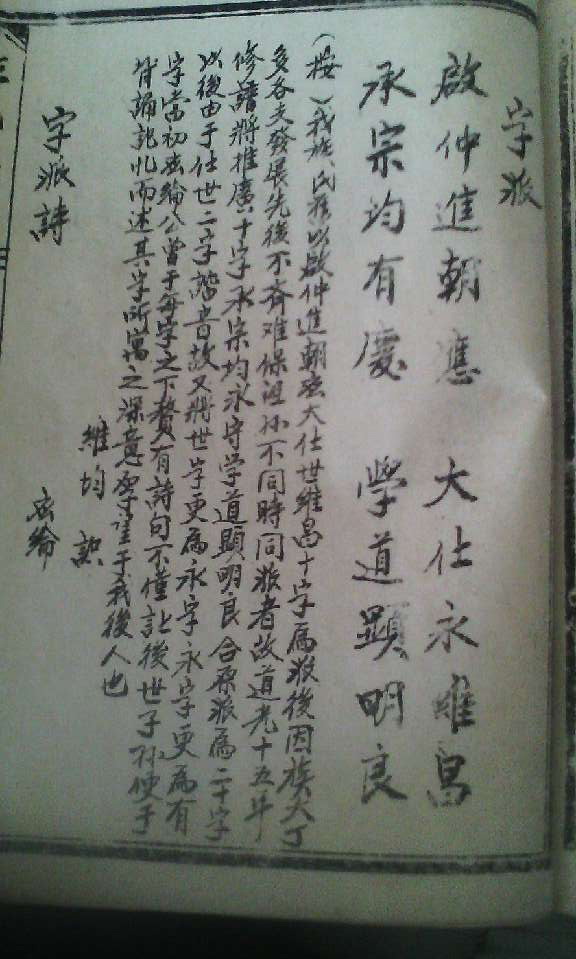 字派
啟仲進朝應 大仕永維昌
承宗均有慶 學道顯明良
（按）我族氏派以啟仲進朝應大仕世維昌十字為派後因族大丁
多各支發展先後不齊难保祖孙不同時同派者故道光十五年
修譜將推廣十字承宗均永守学道顯明良合原派為二十字
以後由于仕世二字諧音故又將世字更為永字永字更為有
字當初 綸公曾于每字之下贅有詩句不僅让後世子孙便于
背誦記忆而述其字所寓之深意 望于我後人也
維均 識
字派詩
綸